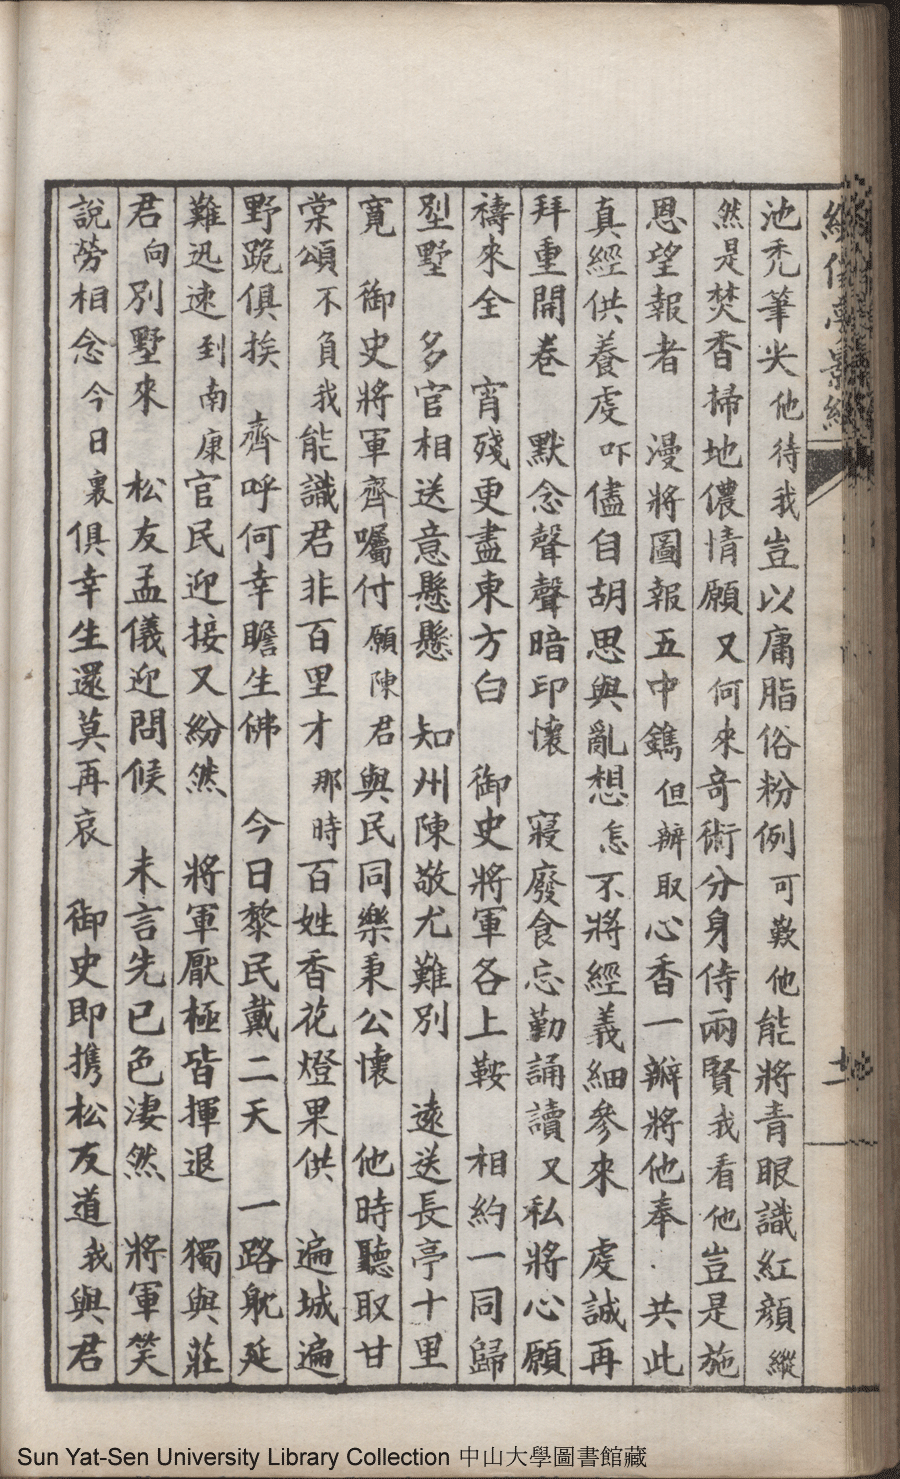 池禿筆尖他待我豈以庸脂俗粉例可歎他能將青眼識紅顏縱
然是焚香掃地儂情願又何來奇術分身侍兩賢我看他豈是施
恩望報者　漫將圖報五中鐫但辦取心香一瓣將他奉．共此
真經供養虔吓儘自胡思與亂想怎不將經義細參來　虔誠再
拜重開卷　默念聲聲暗印懷　寢廢食忘勤誦讀又私將心願
禱來全　宵殘更盡東方白　御史將軍各上鞍　相約一同歸
別墅　多官相送意懸懸　知州陳敬尤難別　遠送長亭十里
寬　御史將軍齊囑付願陳君與民同樂秉公懷　他時聽取甘
棠頌不負我能識君非百里才那時百姓香花燈果供　遍城遍
野跪俱挨　齊呼何幸瞻生佛　今日黎民戴二天　一路躭延
難迅速到南康官民迎接又紛然　將軍厭極皆揮退　獨與莊
君向別墅來　松友孟儀迎問候　未言先已色淒然　將軍笑
說勞相念今日裏俱幸生還莫再哀　御史即携松友道我與君
Sun Yat-Sen University Library Collection 中山大學圖書館藏